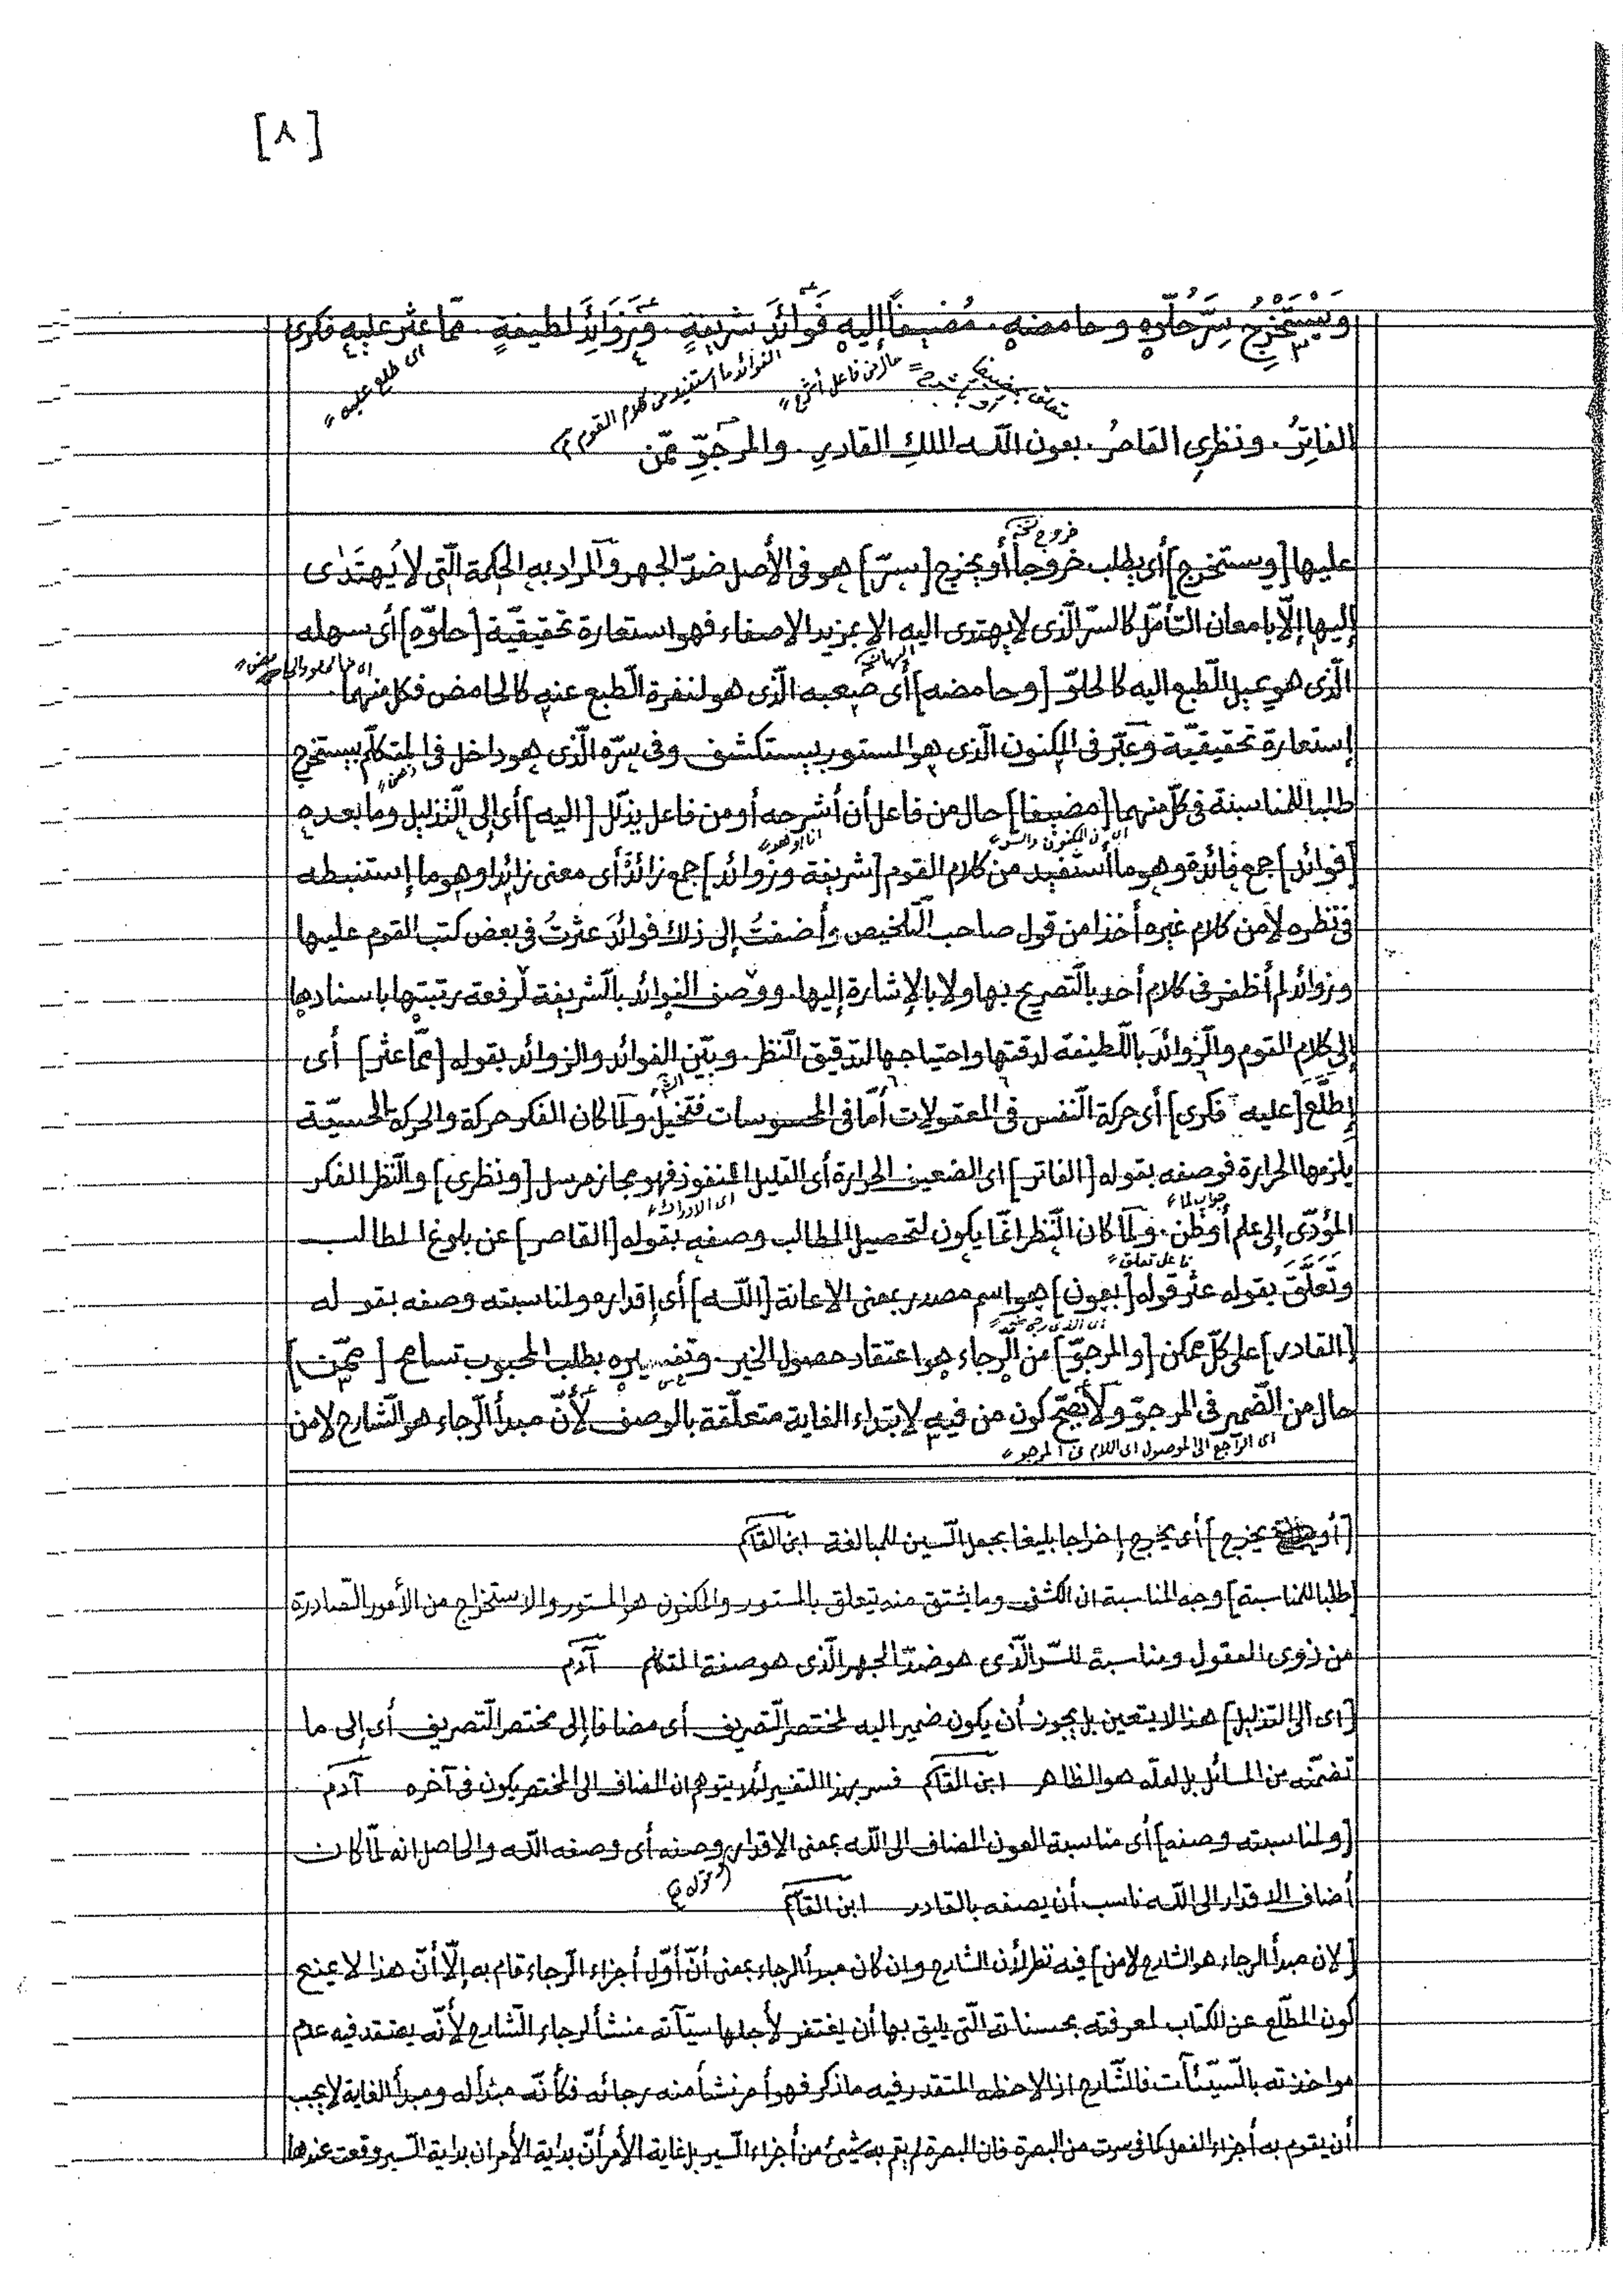 [٨]
وَيَسْتَخْرِجُ سِرَّ حُلْوِّهِ وحامضه. مُضيفاً إليه فَوَائدَ شريفةٍ. وَزَوَائِدَ لطيفةٍ. ممّا عثر عليه فكرى
اى طلع عليه
الفوائد ما استفيد من كلام القوم
حال من فاعل أشرح
الفاتِرُ. ونظرِى القاصرُ. بعون الله الملكِ القادرِ. والمرجوِّ ممّن
خروج
عليها [ويستخرج] أى يطلب خروجاً أو يخرج [سرّ] هو فى الأصل ضدّ الجهر والمراد به الحكمة الّتى لا يُهتدٰى
إليها إلّا بامعان التأمّل كالسرّ الّذى لا يهتدى اليه الا بمزيد الاصغاء فهو استعارة تحقيقيّة [حلوّه] أى سهله
الّذى هو يميل الطبع اليه كالحلوّ [وحامضه] أى صعبه الّذى هو لنفرة الطبع عنه كالحامض فكل منهما
إستعارة تحقيقيّة وعبّر فى المكنون الّذى هو المستور بيستكشف وفى سرّه الّذى هو داخل فى المتكلّم بيستخرج
طلبا للمناسبة فى كلّ منهما [مضيفا] حال من فاعل أن أشرحه أو من فاعل يذلّل [اليه] أى إلى التذليل وما بعده
اى فى المكنون والسر
[فوائد] جمع فائدة وهو ما أستفيد من كلام القوم [شريفة وزوائد] جمع زائدة أى معنى زائد وهو ما إستنبطه
فى نظره لا من كلام غيره أخذا من قول صاحب التلخيص وأضفتُ إلى ذلك فوائدَ عثرتُ فى بعض كتب القوم عليها
وزوائد لم أظفر فى كلام أحد بالتّصريح بها ولا بالإشارة إليها. ووصف الفوائد بالشّريفة لرفعة رتبتها باسنادها
إلى كلام القوم والزّوائدَ باللّطيفة لدقتها واحتياجها لتدقيق النّظر. وبيّن الفوائد والزوائد بقوله [ممّا عثر] أى
إطَّلَعَ [عليه فكرى] أى حركة النّفس فى المعقولات أمّا فى المحسوسات فتخييل. ولمّا كان الفكر حركة والحركة الحسيّة
يلزمها الحرارة فوصفه بقوله [الفاتر] اى الضعيف الحرارة أى القليل النفوذ فهو مجاز مرسل [ونظرى] والنّظر الفكر
جواب لما
اى الادراك
المؤدّى إلى علم أو ظن. ولمّا كان النّظر إنّما يكون لتحصيل المطالب وصفه بقوله [القاصر] عن بلوغ المطالب
فاعل تعلق
وتَعَلَّقَ بقوله عثر قوله [بعون] هو اسم مصدر بمعنى الاعانة [الله] أى إقداره ولمناسبته وصفه بقوله
[القادر] على كلّ ممكن [والمرجوّ] من الرّجاء هو اعتقاد حصول الخير. وتفسيره بطلب المحبوب تسامح [ممّن]
حال من الضّمير فى المرجوّ ولا يصحّ كون من فيه لابتداء الغاية متعلّقة بالوصف لأنّ مبدأ الرّجاء هو الشّارح لا من
اى الرّاجع الى الموصول اى اللام فى المرجو
[أو يخرج] أى يخرج إخراجا بليغا بجعل السّين للمبالغة ابن القاسم
[طلبا للمناسبة] وجه المناسبة ان الكشف وما يشتق منه يتعلق بالمستور والمكنون هو المستور والاستخراج من الأمور الصّادرة
من ذوى العقول ومناسبة للسّر الّذى هو ضدّ الجهر الّذى هو صفة المتكلم آدم
[اى الى التذليل] هذا لا يتعين بل يجوز أن يكون ضمير اليه لمختصر التّصريف أى مضافا إلى مختصر التّصريف أى إلى ما
تضمّنه من المسائل بل لعلّه هو الظاهر ابن القاسم فسر بهذا التفسير لئلا يتوهم ان المضاف الى المختصر يكون فى آخره آدم
[ولمناسبته وصفه] أى مناسبة العون المضاف الى الله بمعنى الاقدار وصفه أى وصفه الله والحاصل انه لمّا كان
أضاف الاقدار الى الله ناسب أن يصفه بالقادر ابن القاسم
[لان مبدأ الرجاء هو الشارح لا من] فيه نظر لأن الشارح وان كان مبدأ الرجاء بمعنى أنّ أوّل أجزاء الرّجاء قام به إلّا أنّ هذا لا يمنع
كون المطّلع عن الكتاب لمعرفته بحسناته الّتى يليق بها أن يغتفر لأجلها سيّآته منشأ لرجاء الشّارح لأنّه يعتقد فيه عدم
مواخذته بالسّيّئات فالشّارح اذا لاحظه المتقدر فيه ما ذكر فهو أمر نشأ منه رجائه فكأنّه مبدأ له ومبدأ الغاية لا يجب
أن يقوم به أجزاء الفعل كما فى سرت من البصرة فان البصرة لم يقم به شيئ من أجزاء السير بل غاية الأمر أنّ بداية الأمر ان بداية السير وقعت عندها